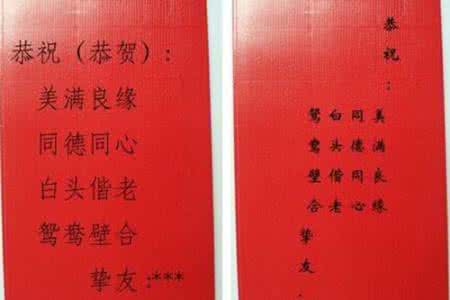 恭祝（恭贺）：
美满良缘
同德同心
白头偕老
鸳鸯壁合
挚友:***
恭祝：
美满良缘
同德同心
白头偕老
鸳鸯壁合
挚友：